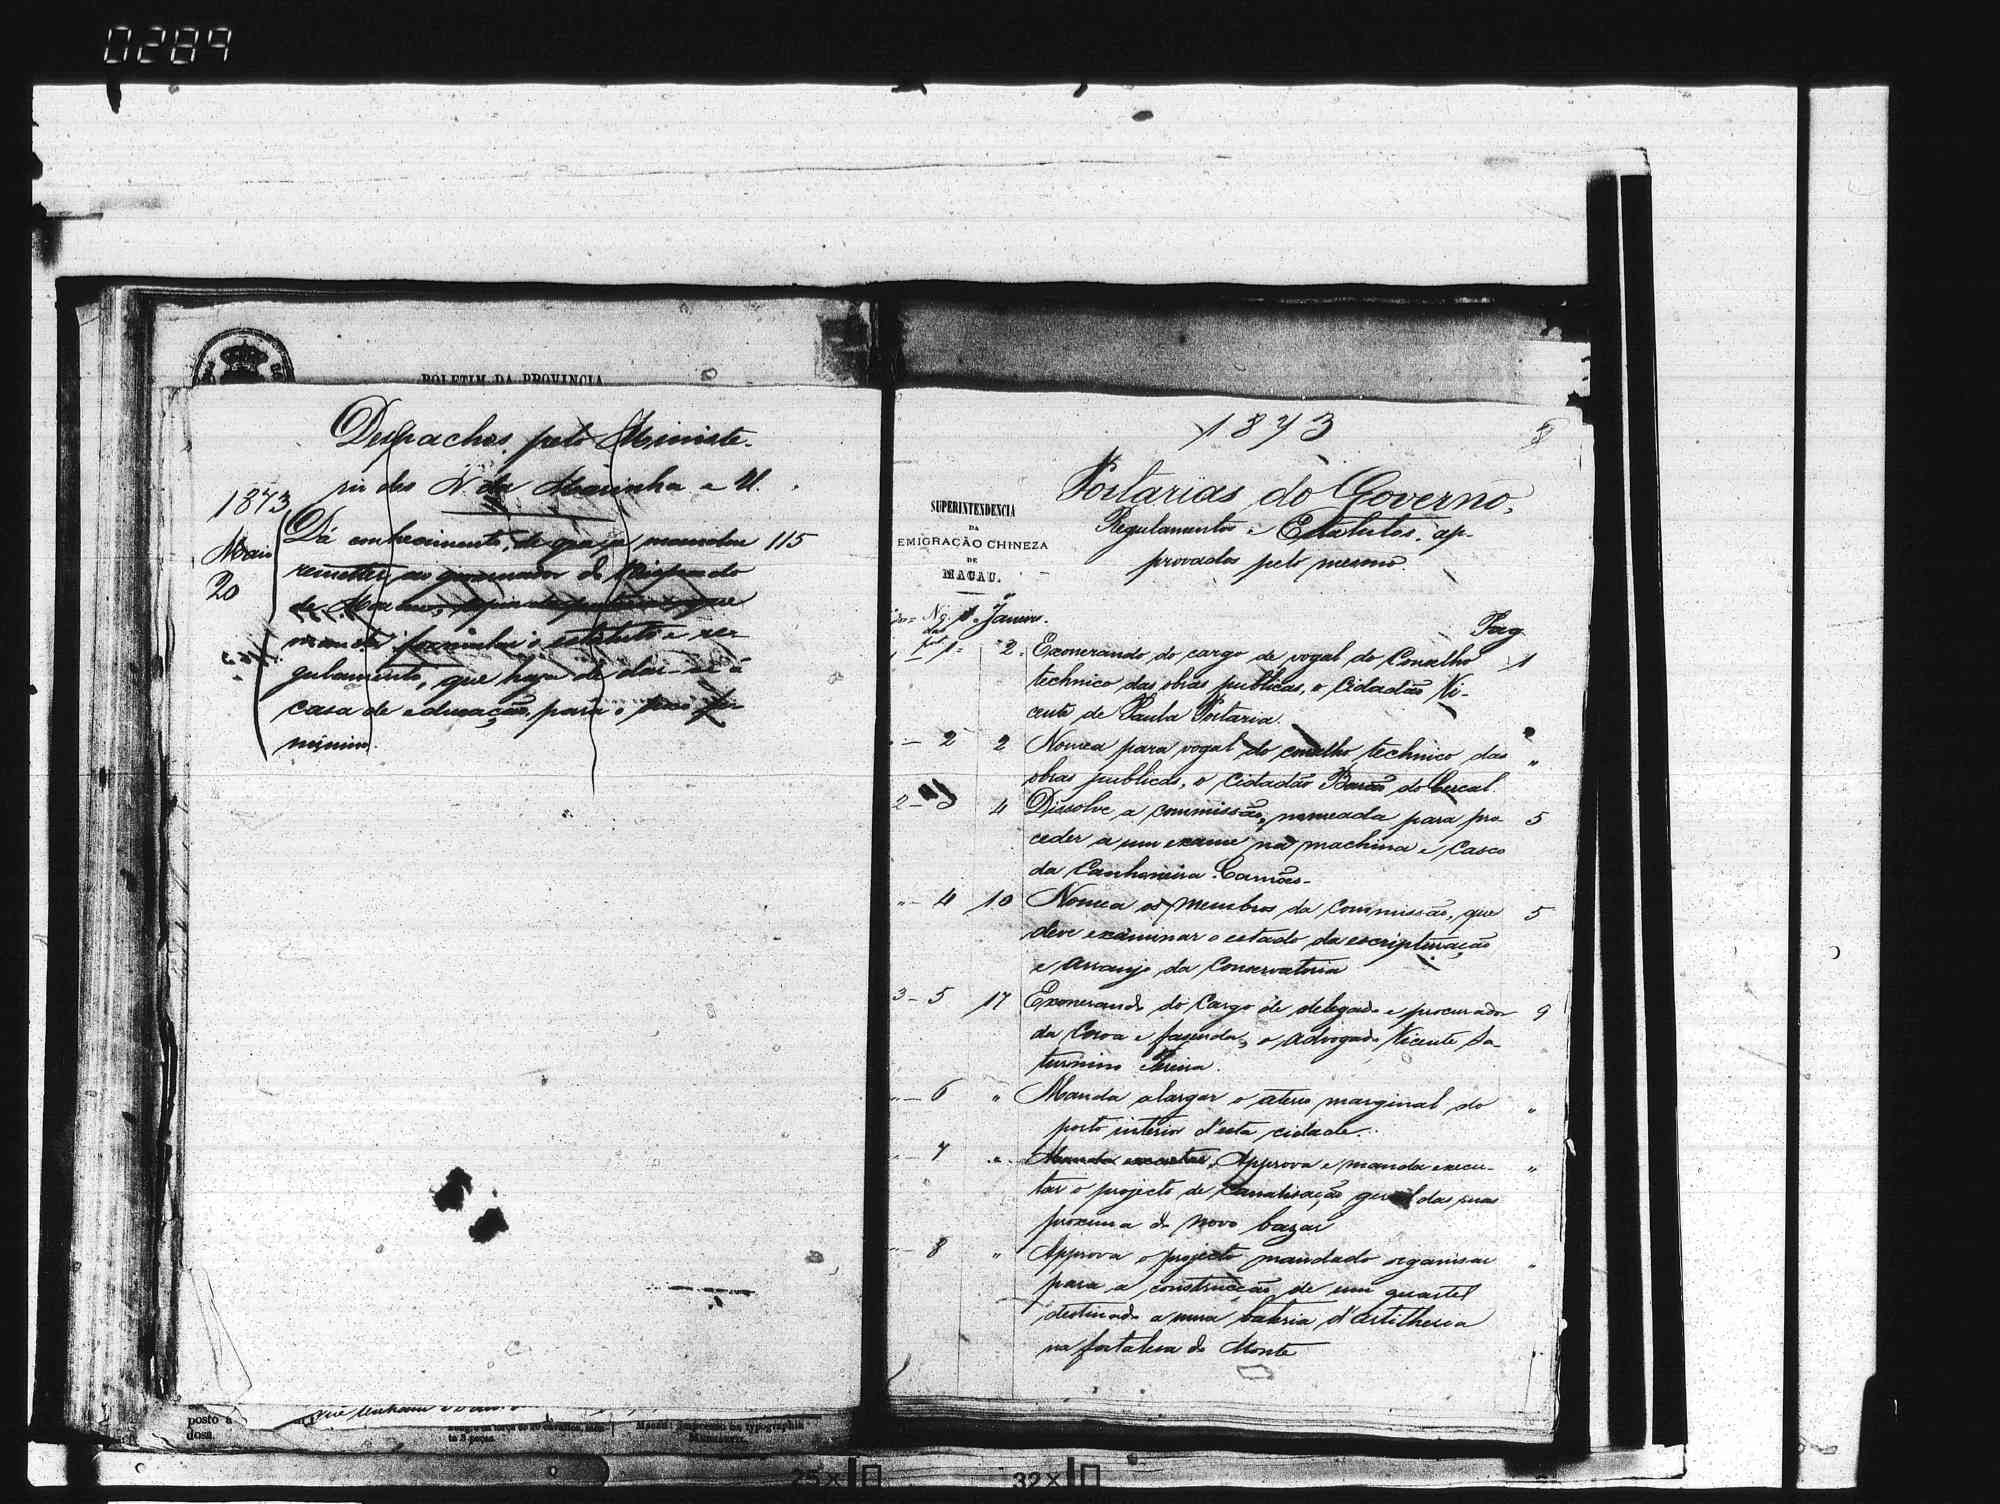 0289
BOLETIM DA PROVINCIA
Despachos pelo Ministe-
rio dos N. da Marinha e U.
1873
Maio
20
Dá conhecimento, de que se mandou 115
remetter ao governador do Bispado
de Macau, copia da portaria, que
manda formular o estatuto e re-
gulamento, que haja de dar-se á
casa de educação, para o sexo fe-
minino.
posto a
dosa.
que tenham
te 3 peças.
Macau: Impresso na typographia
1873
8
Portarias do Governo,
Regulamentos e Estatutos, ap-
provados pelo mesmo
SUPERINTENDENCIA
DA
EMIGRAÇÃO CHINEZA
DE
MACAU.
Janeiro.
Pag
1 2 Exonerando do cargo de vogal do Conselho 1
technico das obras publicas, o Cidadão Vi-
cente de Paula Portaria.
2 2 Nomea para vogal do conselho technico das "
obras publicas, o Cidadão Barão do Cercal.
2 - 3 4 Dissolve a commissão, nomeada para pro- 5
ceder a um exame na machina e Casco
da Canhoneira Camões.
" - 4 10 Nomea os membros da Commissão, que 5
deve examinar o estado da escripturação
e arranjo da Conservatoria
3 - 5 17 Exonerando do Cargo de delegado e procurador 9
da Coroa e fazenda, o advogado Vicente Sa-
turnino Pereira.
" - 6 " Manda alargar o aterro marginal do "
porto interior d'esta cidade.
" - 7 " Manda executar, Approva e manda execu- "
tar o projecto de Canalisação geral das ruas
proxima do novo bazar
" - 8 " Approva o projecto mandado organisar "
para a construcção de um quartel
destinado a uma bateria d'artilheria
na fortaleza do Monte
25X
32X